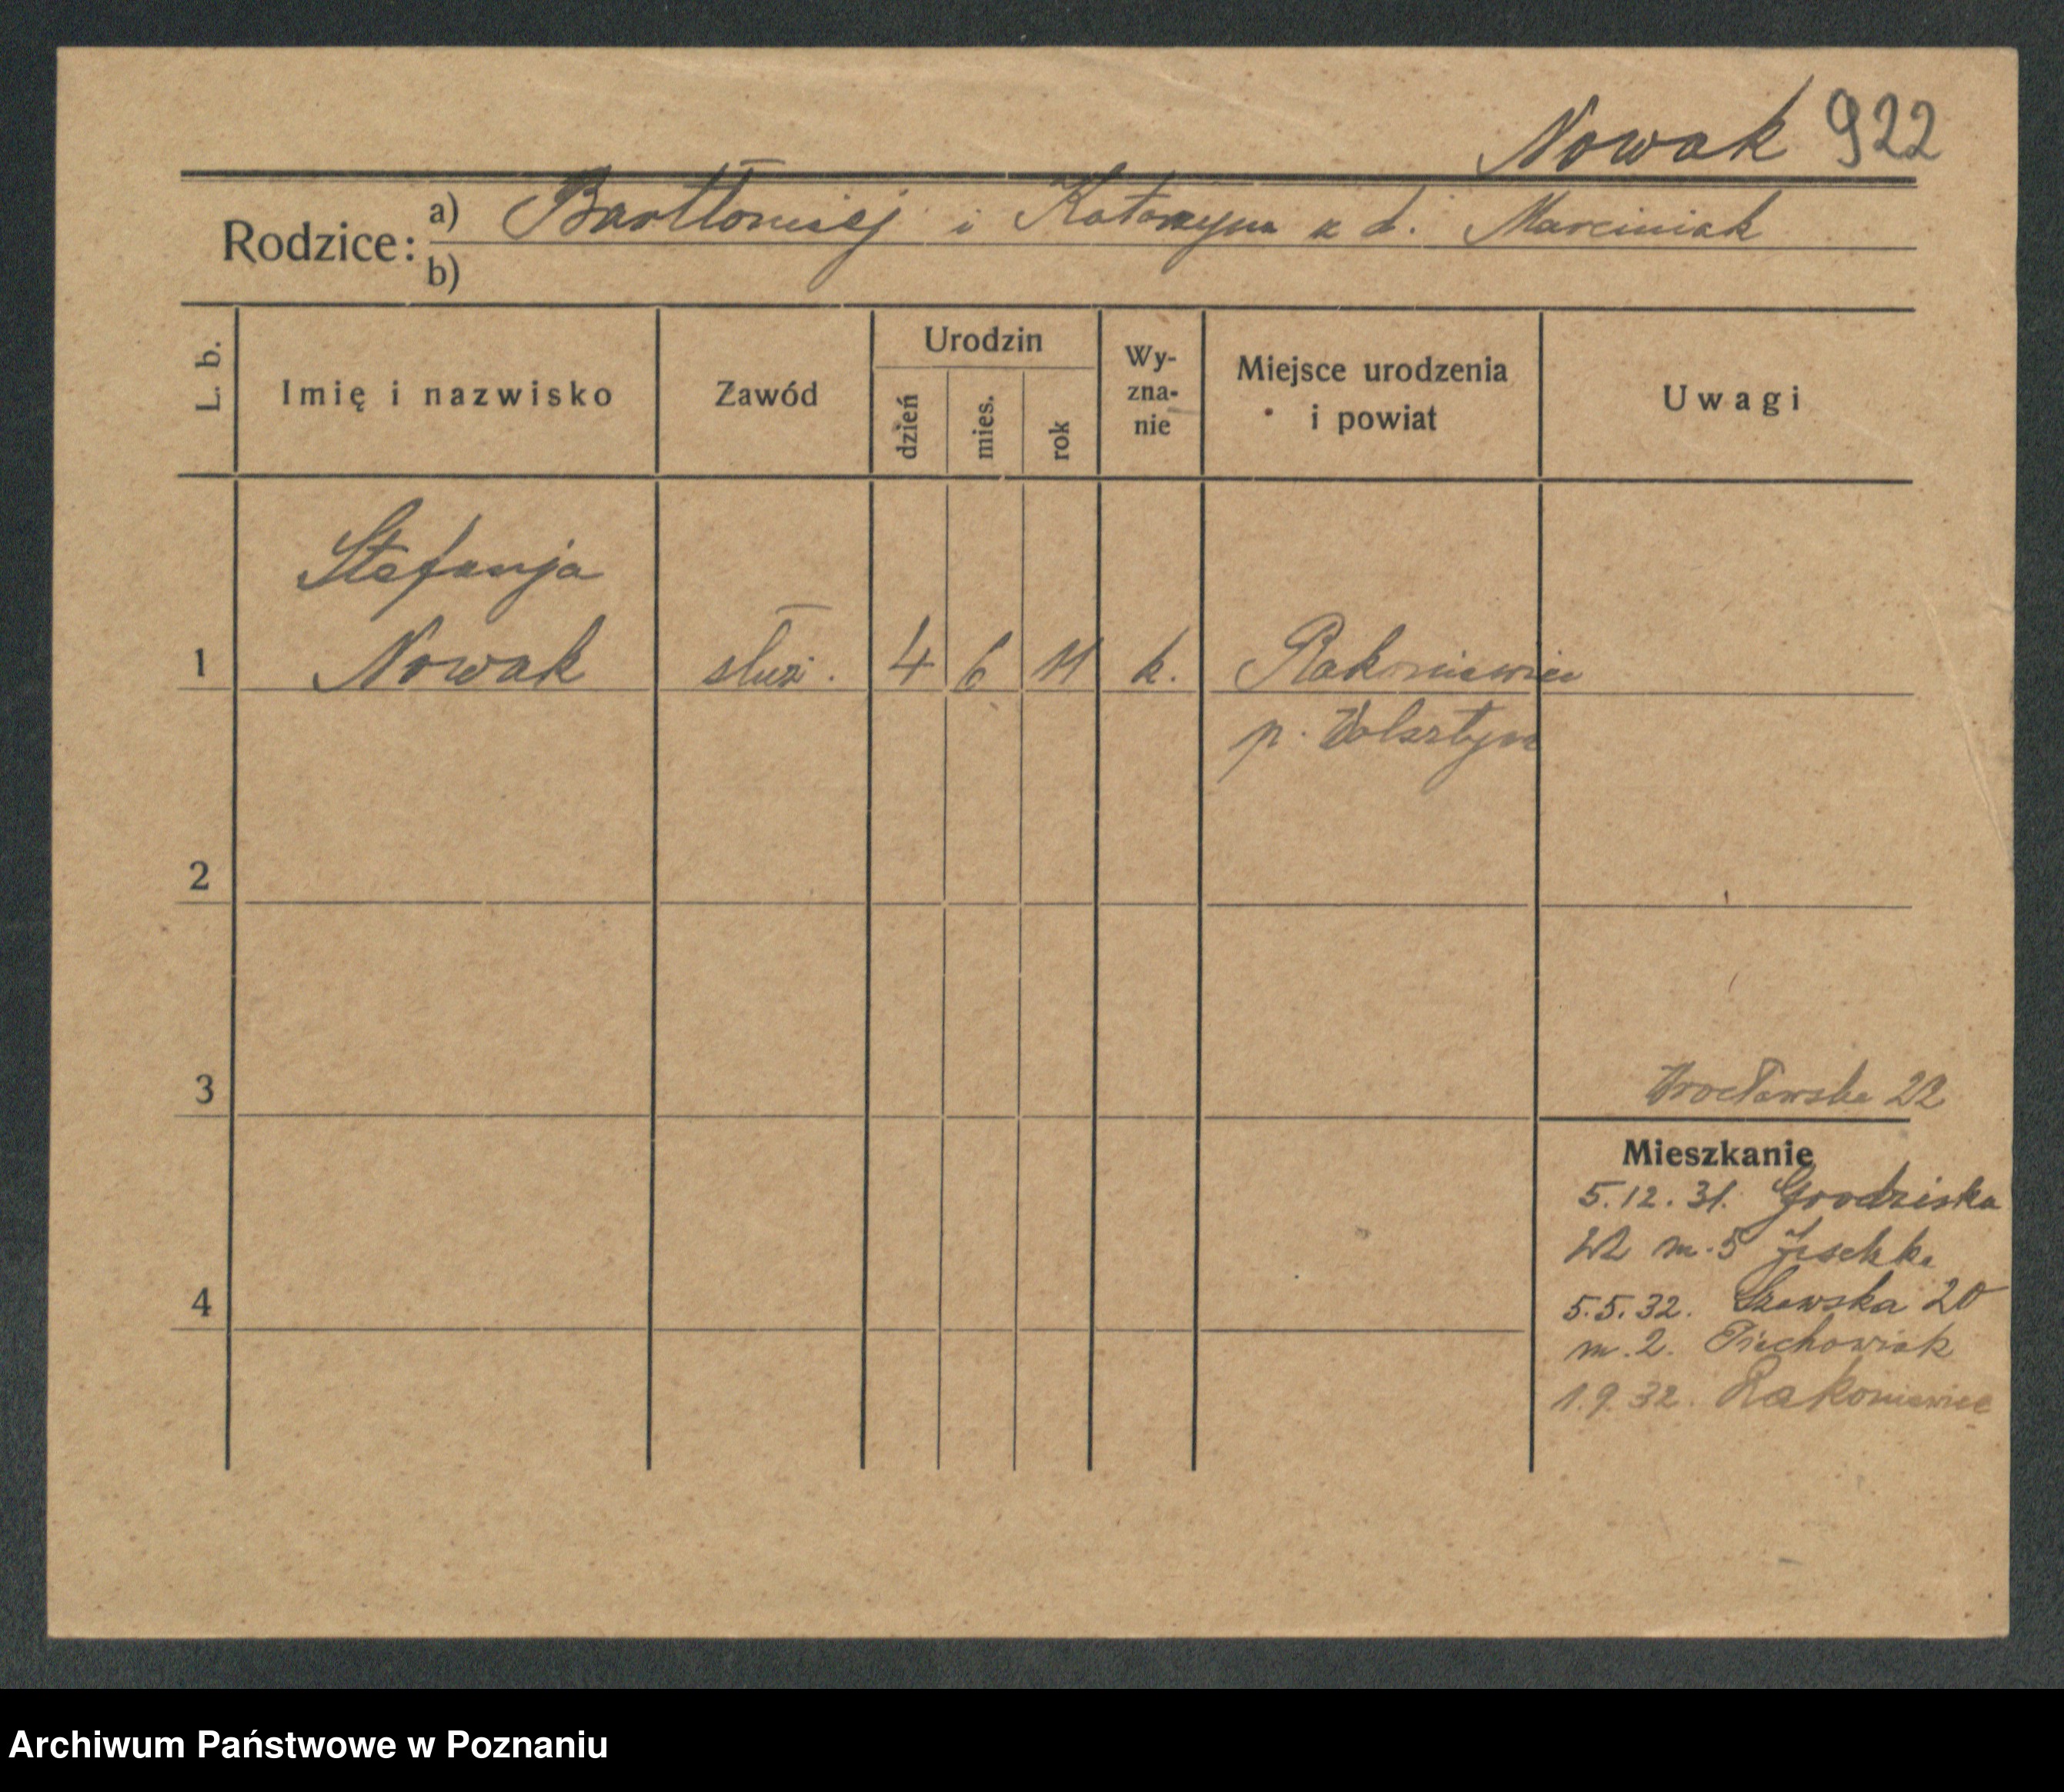 Nowak 922
Rodzice: a) Bartłomiej i Katarzyna z d. Marciniak
b)
L. b. Imię i nazwisko Zawód Urodzin dzień mies. rok Wy-zna-nie Miejsce urodzenia i powiat Uwagi
Stefanja
1 Nowak służ. 4 6 11 k. Rakoniewice
p. Wolsztyn
2
3 Wrocławska 22
Mieszkanie
5.12.31. Grodziska
m. 5
4 5.5.32. Szewska 20
m. 2. Piechowiak
1.9.32. Rakoniewice
Archiwum Państwowe w Poznaniu